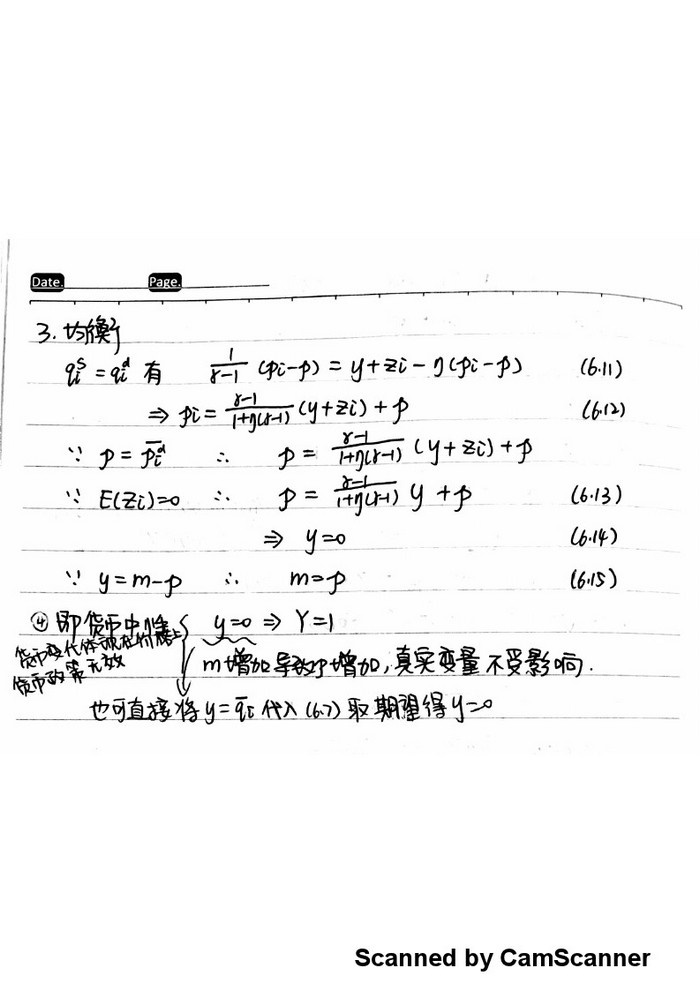 Date. Page.
3. 均衡
qᵢˢ = qᵢᵈ 有 1/(γ-1) (pᵢ-p) = y+zᵢ-η(pᵢ-p) (6.11)
⇒ pᵢ = (γ-1)/(1+η(γ-1)) (y+zᵢ) + p (6.12)
∵ p = p̄ᵢᵈ ∴ p = (γ-1)/(1+η(γ-1)) (y+zᵢ) + p
∵ E(zᵢ)=0 ∴ p = (γ-1)/(1+η(γ-1)) y + p (6.13)
⇒ y=0 (6.14)
∵ y=m-p ∴ m=p (6.15)
④ 即货币中性 { y=0 ⇒ Y=1
m增加导致p增加,真实变量不受影响.
货币变化体现在价格上
货币政策无效
也可直接将y=q̄ᵢ代入(6.7)取期望得y=0
Scanned by CamScanner